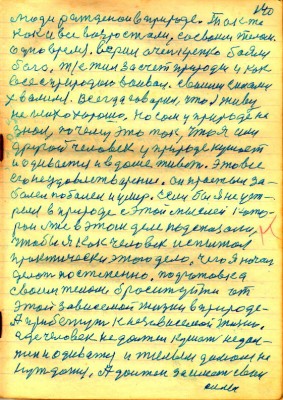 140
люди рождении в природе. Так же
как и все возростали, со своим телом.
одно время. верил
бога, жили за счет природы и как
все с природою воевал. своими силами
хвалился. Всегда говорил, что я живу
не плохо хорошо. Но сам у природе не
знал, почему это так, что я или
другой человек у природе кушает
и одевается и в доме живет. Это все
его неудовлетворение. он простыл за-
болел поболел и умер. Если бы я не уст-
рел в природе с этой мыслей кото-
рой мне в этом деле подсказали,
чтобы я как человек испытал
практически это дело. Чего я начал
делать постепенно. подготовка
своим телом бросить уйти от
этой зависимой жизни в природе.
А прибегнут к независимой жизни.
где человек не должен кушать не дол-
жен одевать и жилым домом не
нуждаться. А должен за счет своих
силах